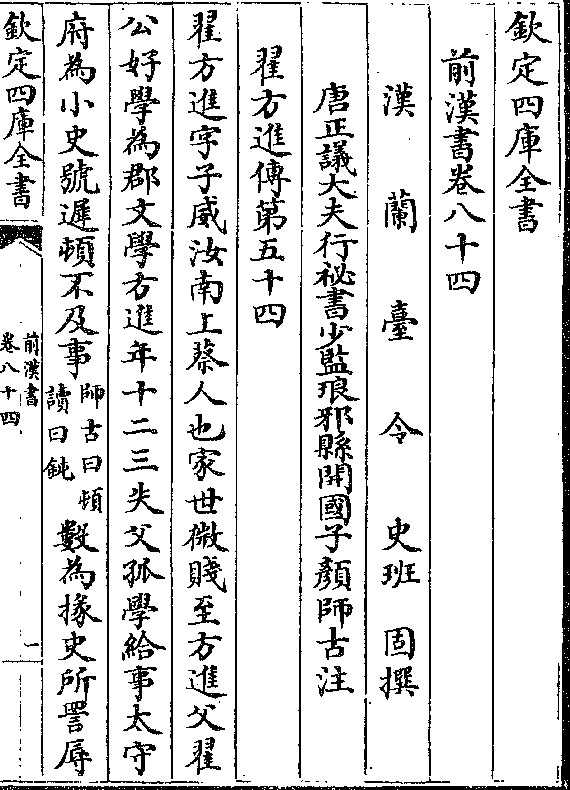 欽定四庫全書
前漢書卷八十四
漢蘭臺令史班固撰
唐正議大夫行祕書少監琅邪縣開國子顏師古注
翟方進傳第五十四
翟方進字子威汝南上蔡人也家世微賤至方進父翟
公好學為郡文學方進年十二三失父孤學給事太守
府為小史號遲頓不及事師古曰頓讀曰鈍數為掾史所詈辱
欽定四庫全書
前漢書
卷八十四
一